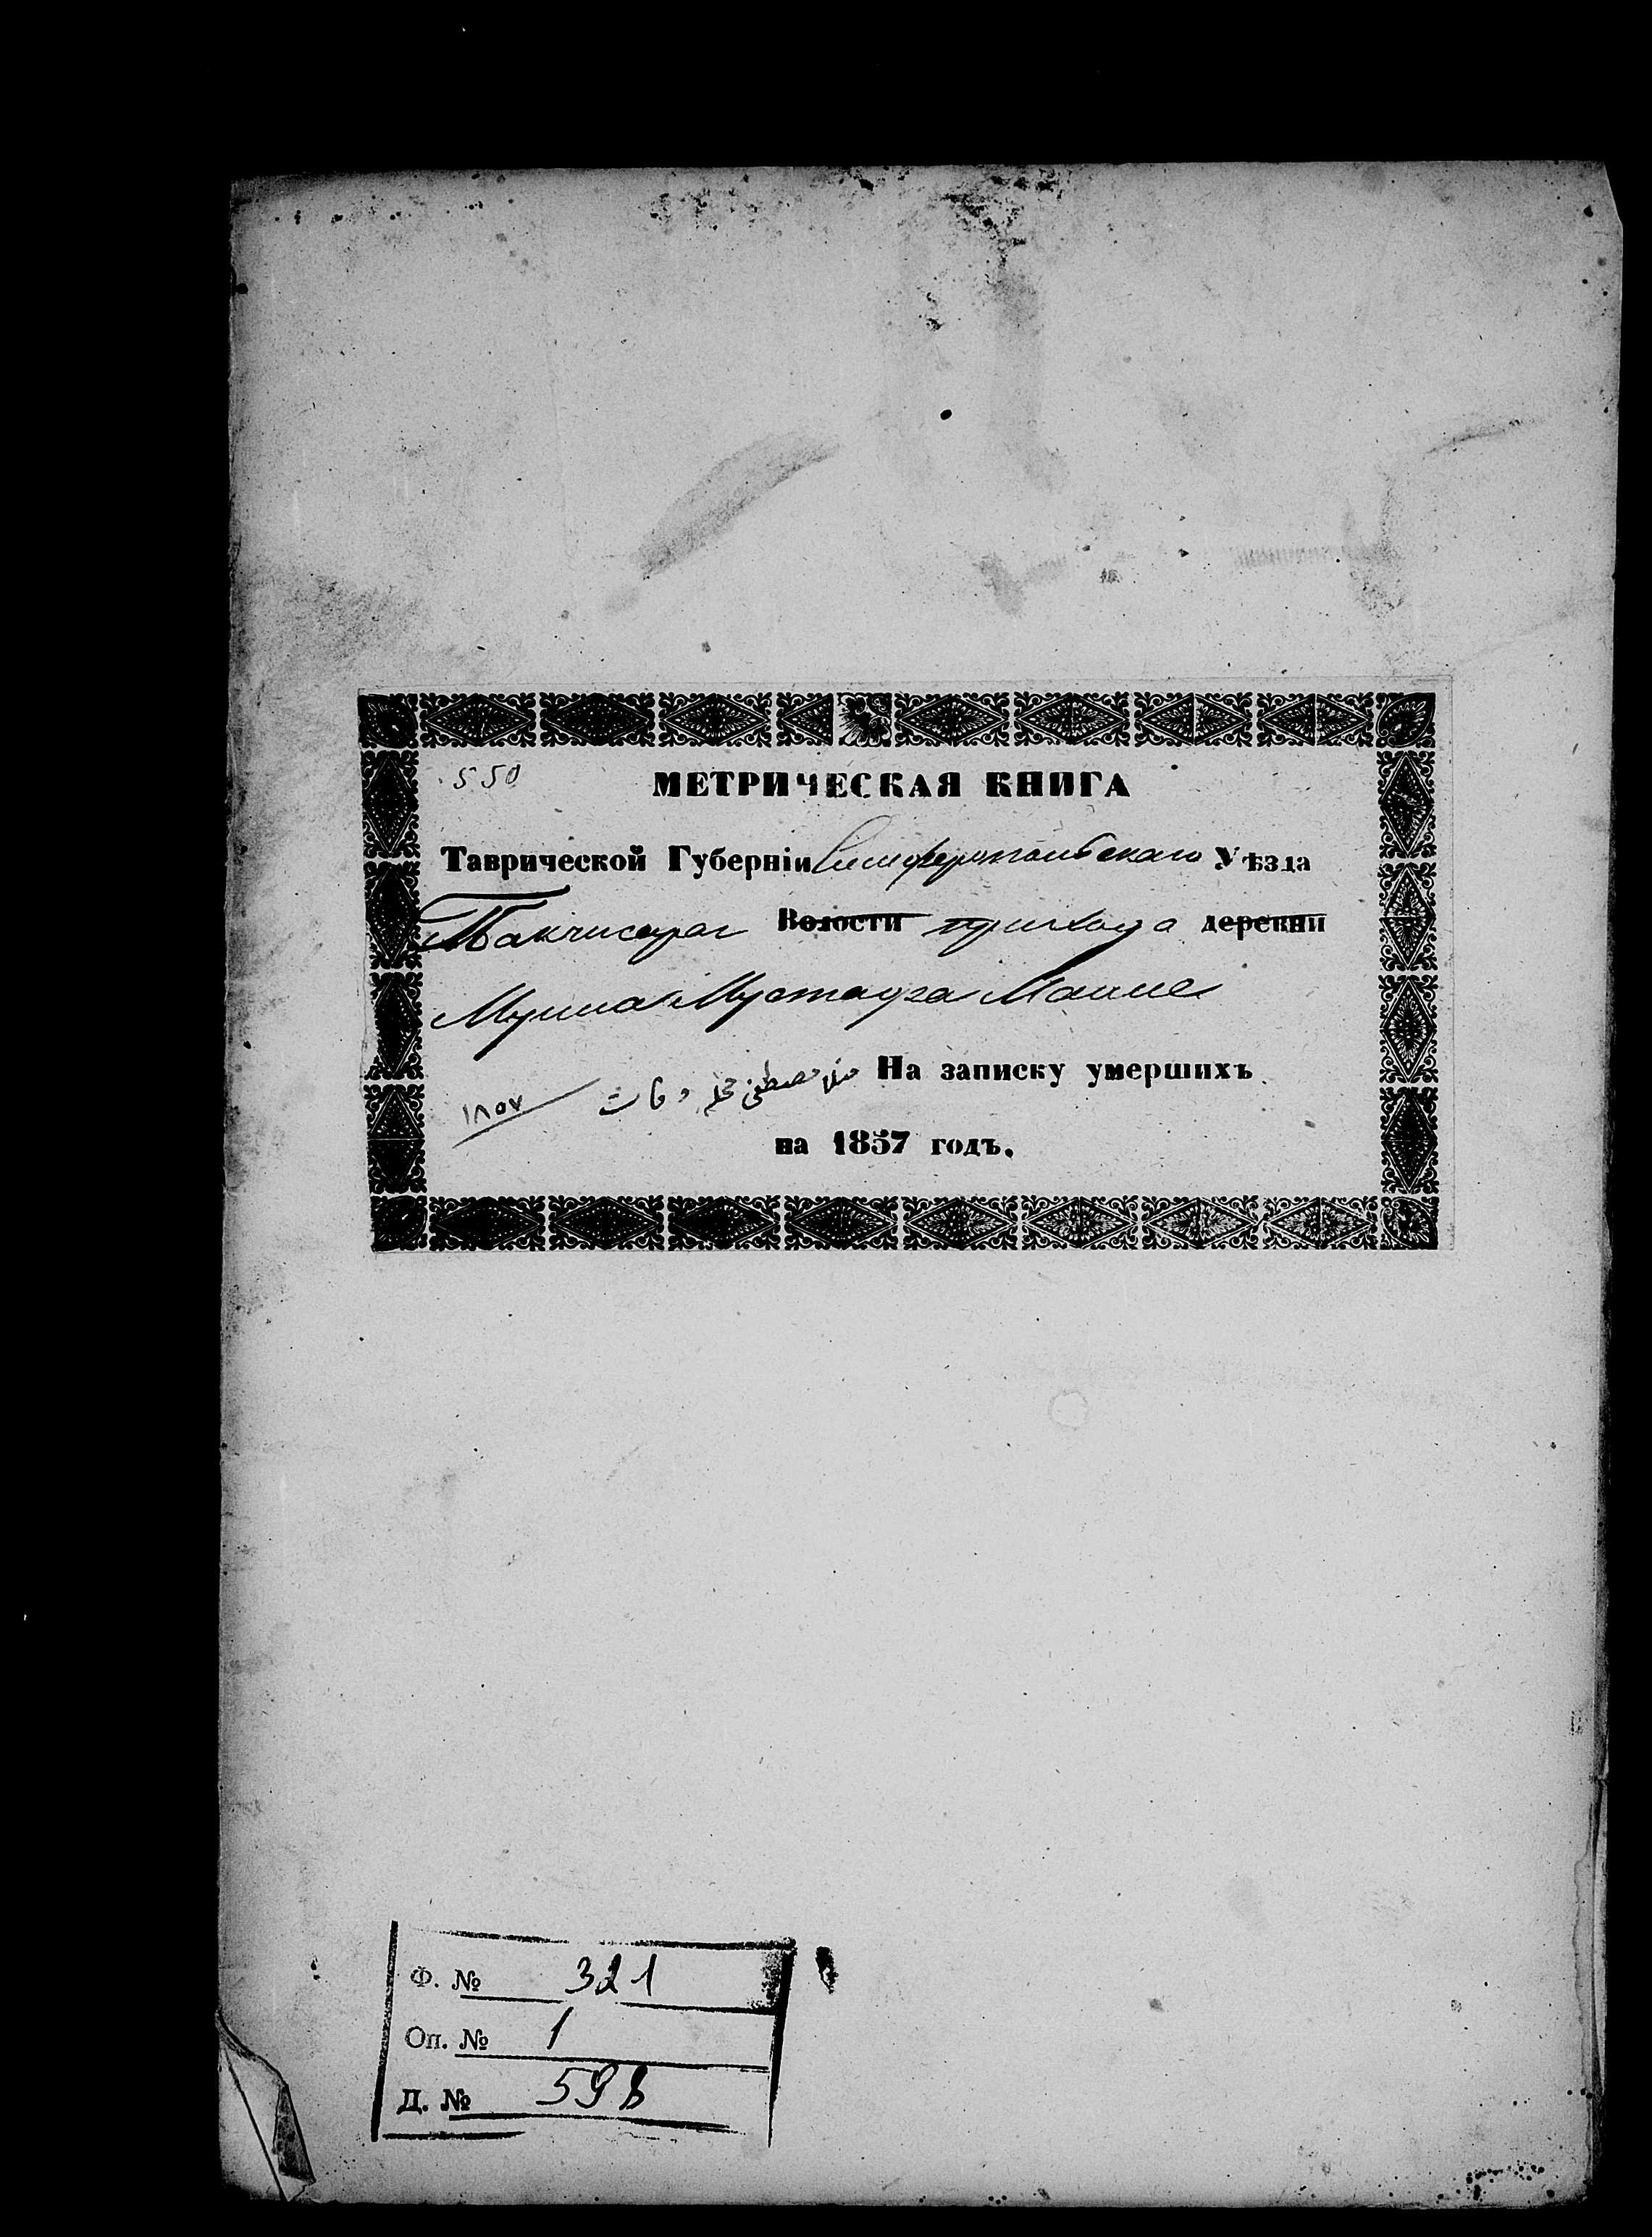 550
МЕТРИЧЕСКАЯ КНИГА
Таврической Губерніи Симферопольскаго Уѣзда
Бакчисарая Волости прихода деревни
Мулла Мустафа Маале
منلا مصطفى محله وفات На записку умершихъ
١٨٥٧
на 1857 годъ.
Ф. № 321
Оп. № 1
Д. № 598